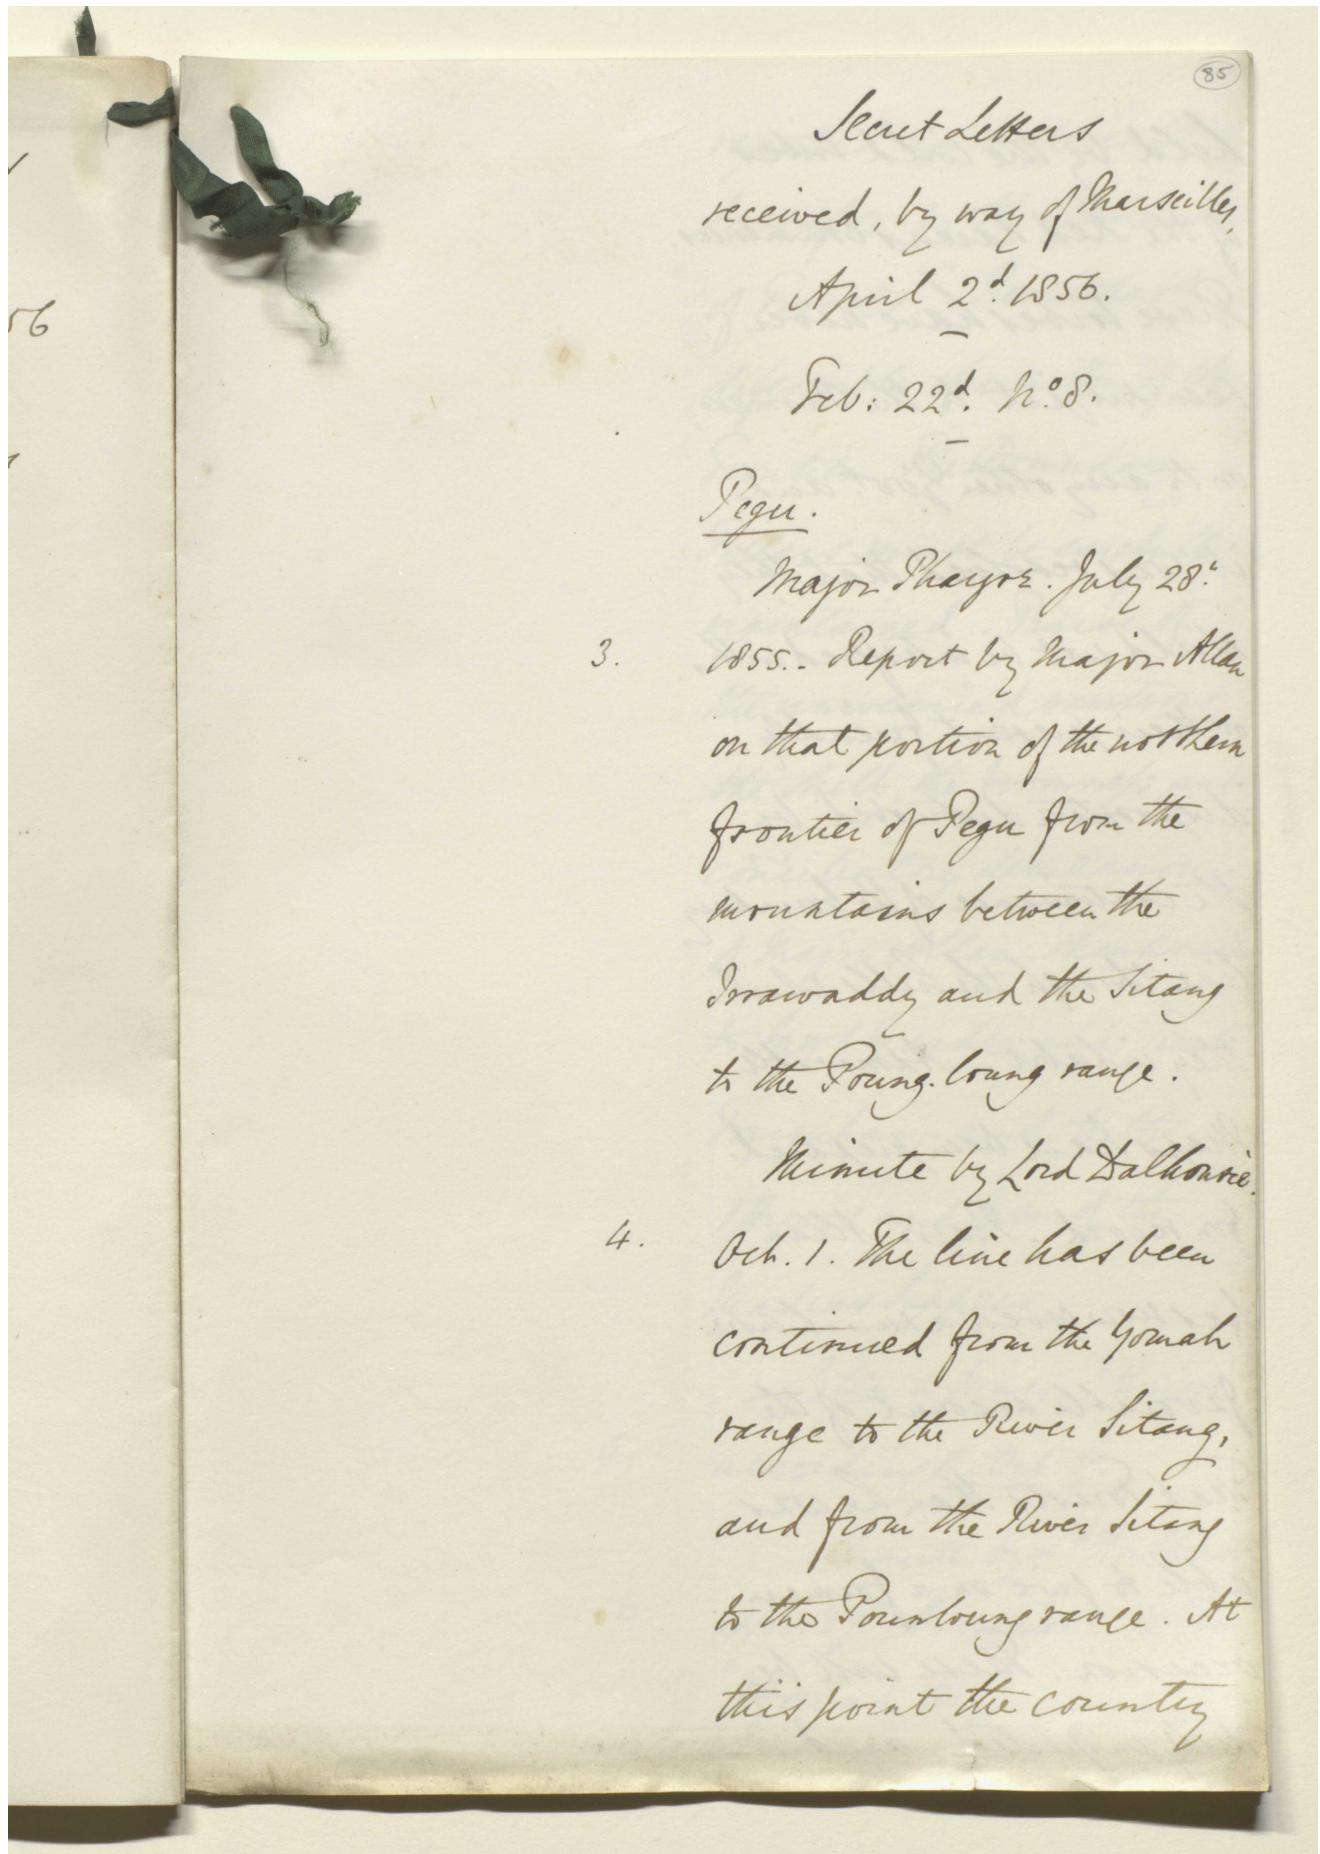 85
Secret Letters
received, by way of Marseilles,
April 2d. 1856.
Feb: 22d. No. 8.
Pegu.
Major Phayre. July 28.
3. 1855.- Report by Major Allan
on that portion of the northern
frontier of Pegu from the
mountains between the
Irrawaddy and the Sitang
to the Poung-loung range.
Minute by Lord Dalhousie.
4. Oct. 1. The line has been
continued from the Yomah
range to the River Sitang,
and from the River Sitang
to the Pounloung range. At
this point the country
56